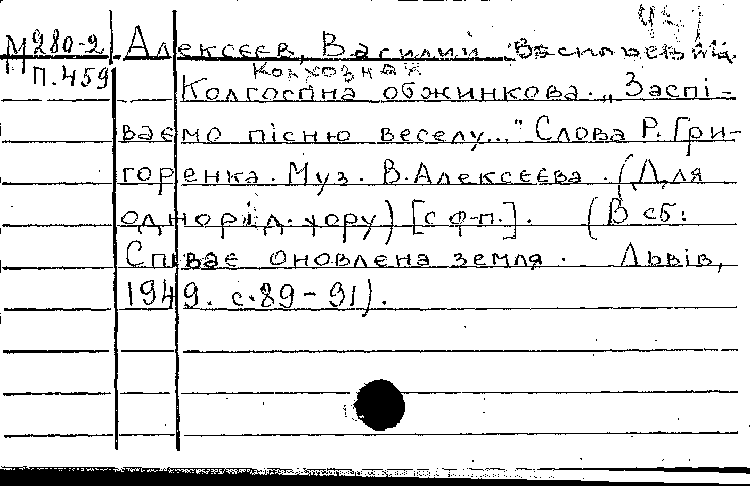 М280-2 Алексєєв, Василий Васильевич.
П.459 Колхозная
Колгоспна обжинкова. „Заспі-
ваємо пісню веселу..." Слова Р. Гри-
горенка. Муз. В. Алексєєва. (Для
однорід. хору) [с ф-п.]. (В сб:
Співає оновлена земля. Львів,
1949. с.89-91).